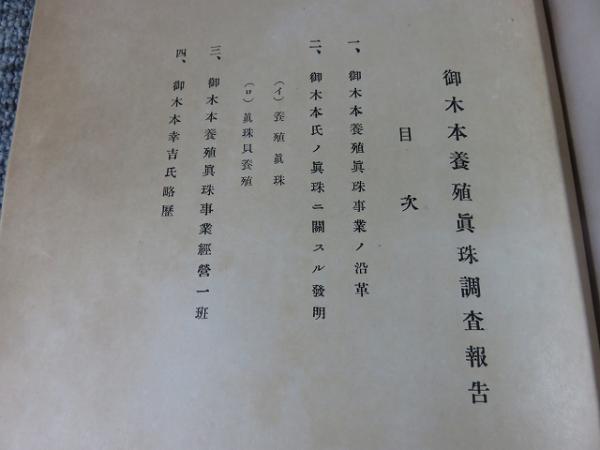 御木本養殖眞珠調査報告
目次
一、御木本養殖眞珠事業ノ沿革
二、御木本氏ノ眞珠ニ關スル發明
(イ)養殖眞珠
(ロ)眞珠貝養殖
三、御木本養殖眞珠事業經營一班
四、御木本幸吉氏略歷